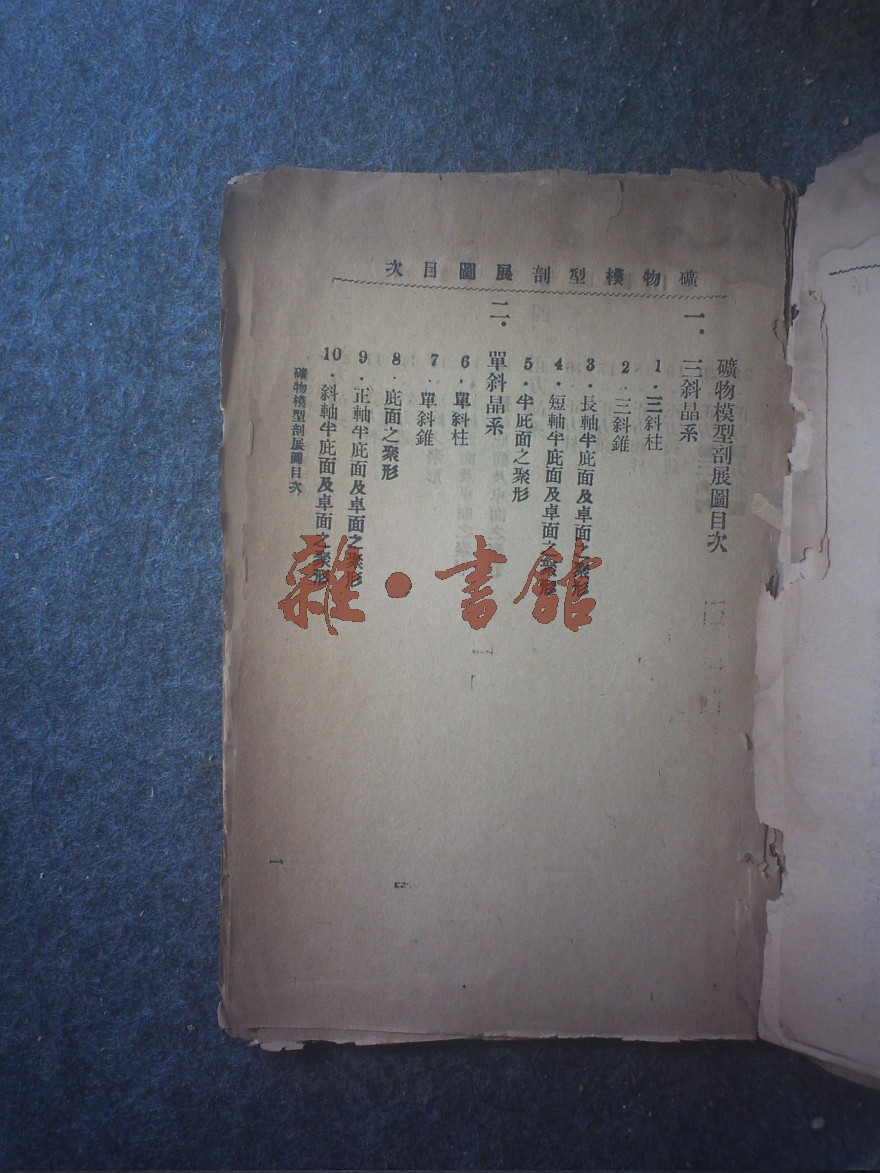 礦物模型剖展圖目次
礦物模型剖展圖目次
一．三斜晶系
1．三斜柱
2．三斜錐
3．長軸半庇面及卓面之聚形
4．短軸半庇面及卓面之聚形
5．半庇面之聚形
二．單斜晶系
6．單斜柱
7．單斜錐
8．庇面之聚形
9．正軸半庇面及卓面之聚形
10．斜軸半庇面及卓面之聚形
礦物模型剖展圖目次
一
雜·書館
序